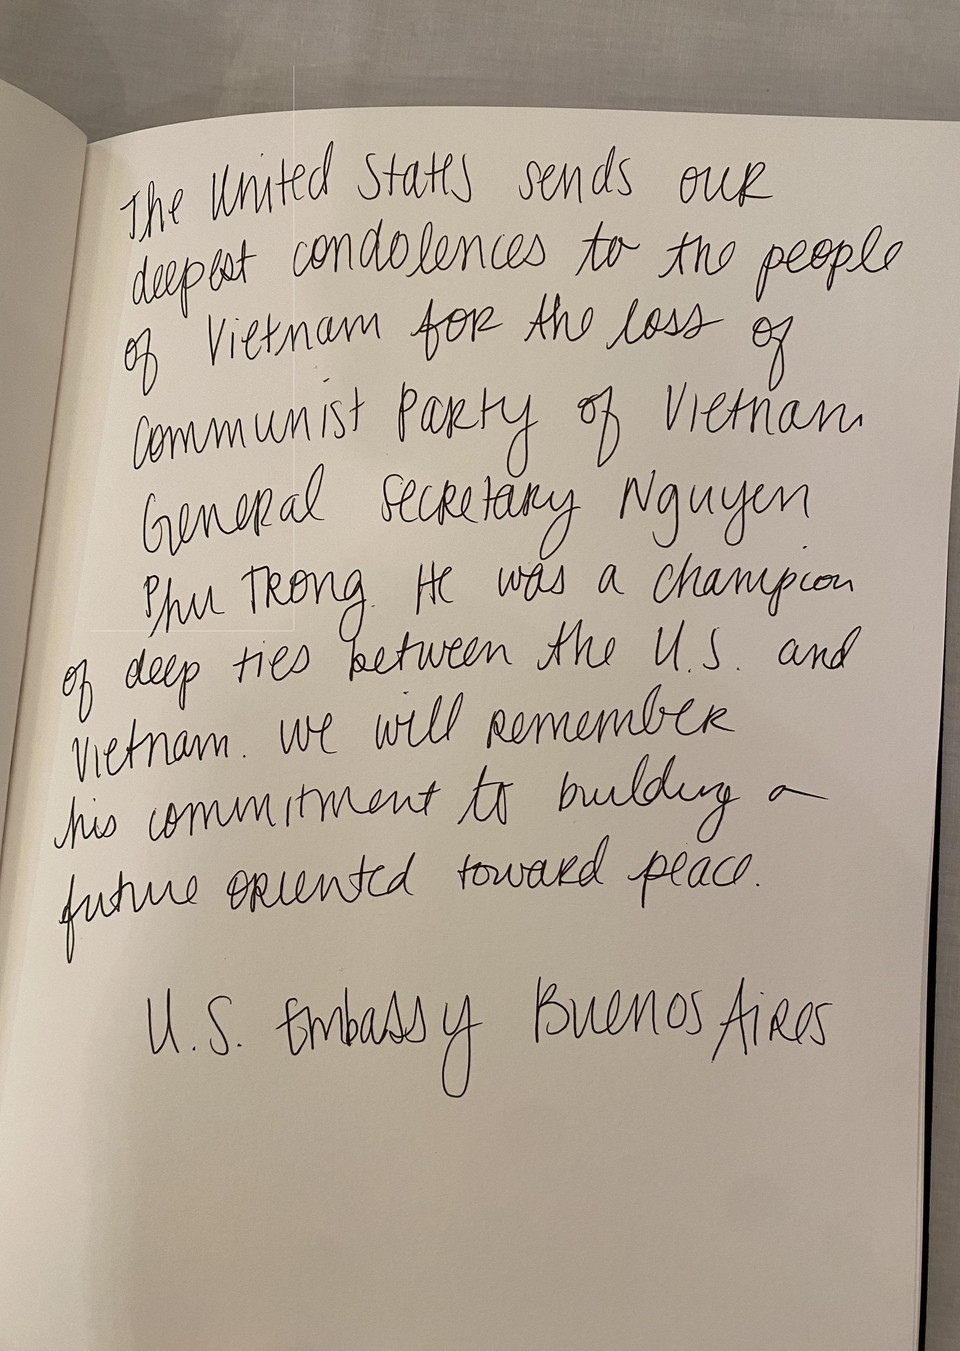 The United States sends our
deepest condolences to the people
of Vietnam for the loss of
Communist Party of Vietnam
General Secretary Nguyen
Phu Trong. He was a champion
of deep ties between the U.S. and
Vietnam. We will remember
his commitment to building a
future oriented toward peace.
U.S. Embassy Buenos Aires